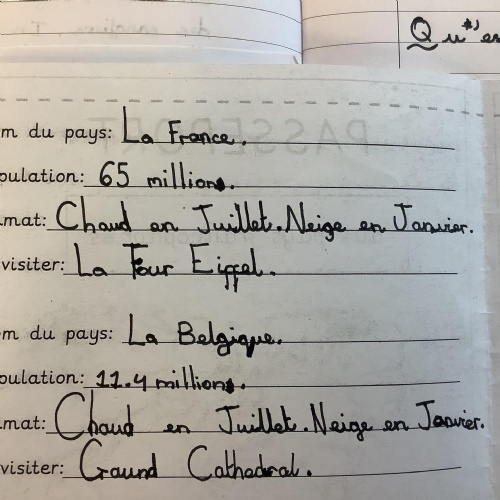 Qu'es
PASSEPORT
m du pays: La France.
pulation: 65 millions.
mat: Chaud en Juillet. Neige en Janvier.
visiter: La Tour Eiffel.
m du pays: La Belgique.
pulation: 11.4 millions.
mat: Chaud en Juillet. Neige en Janvier.
visiter: Gaund Cathedral.